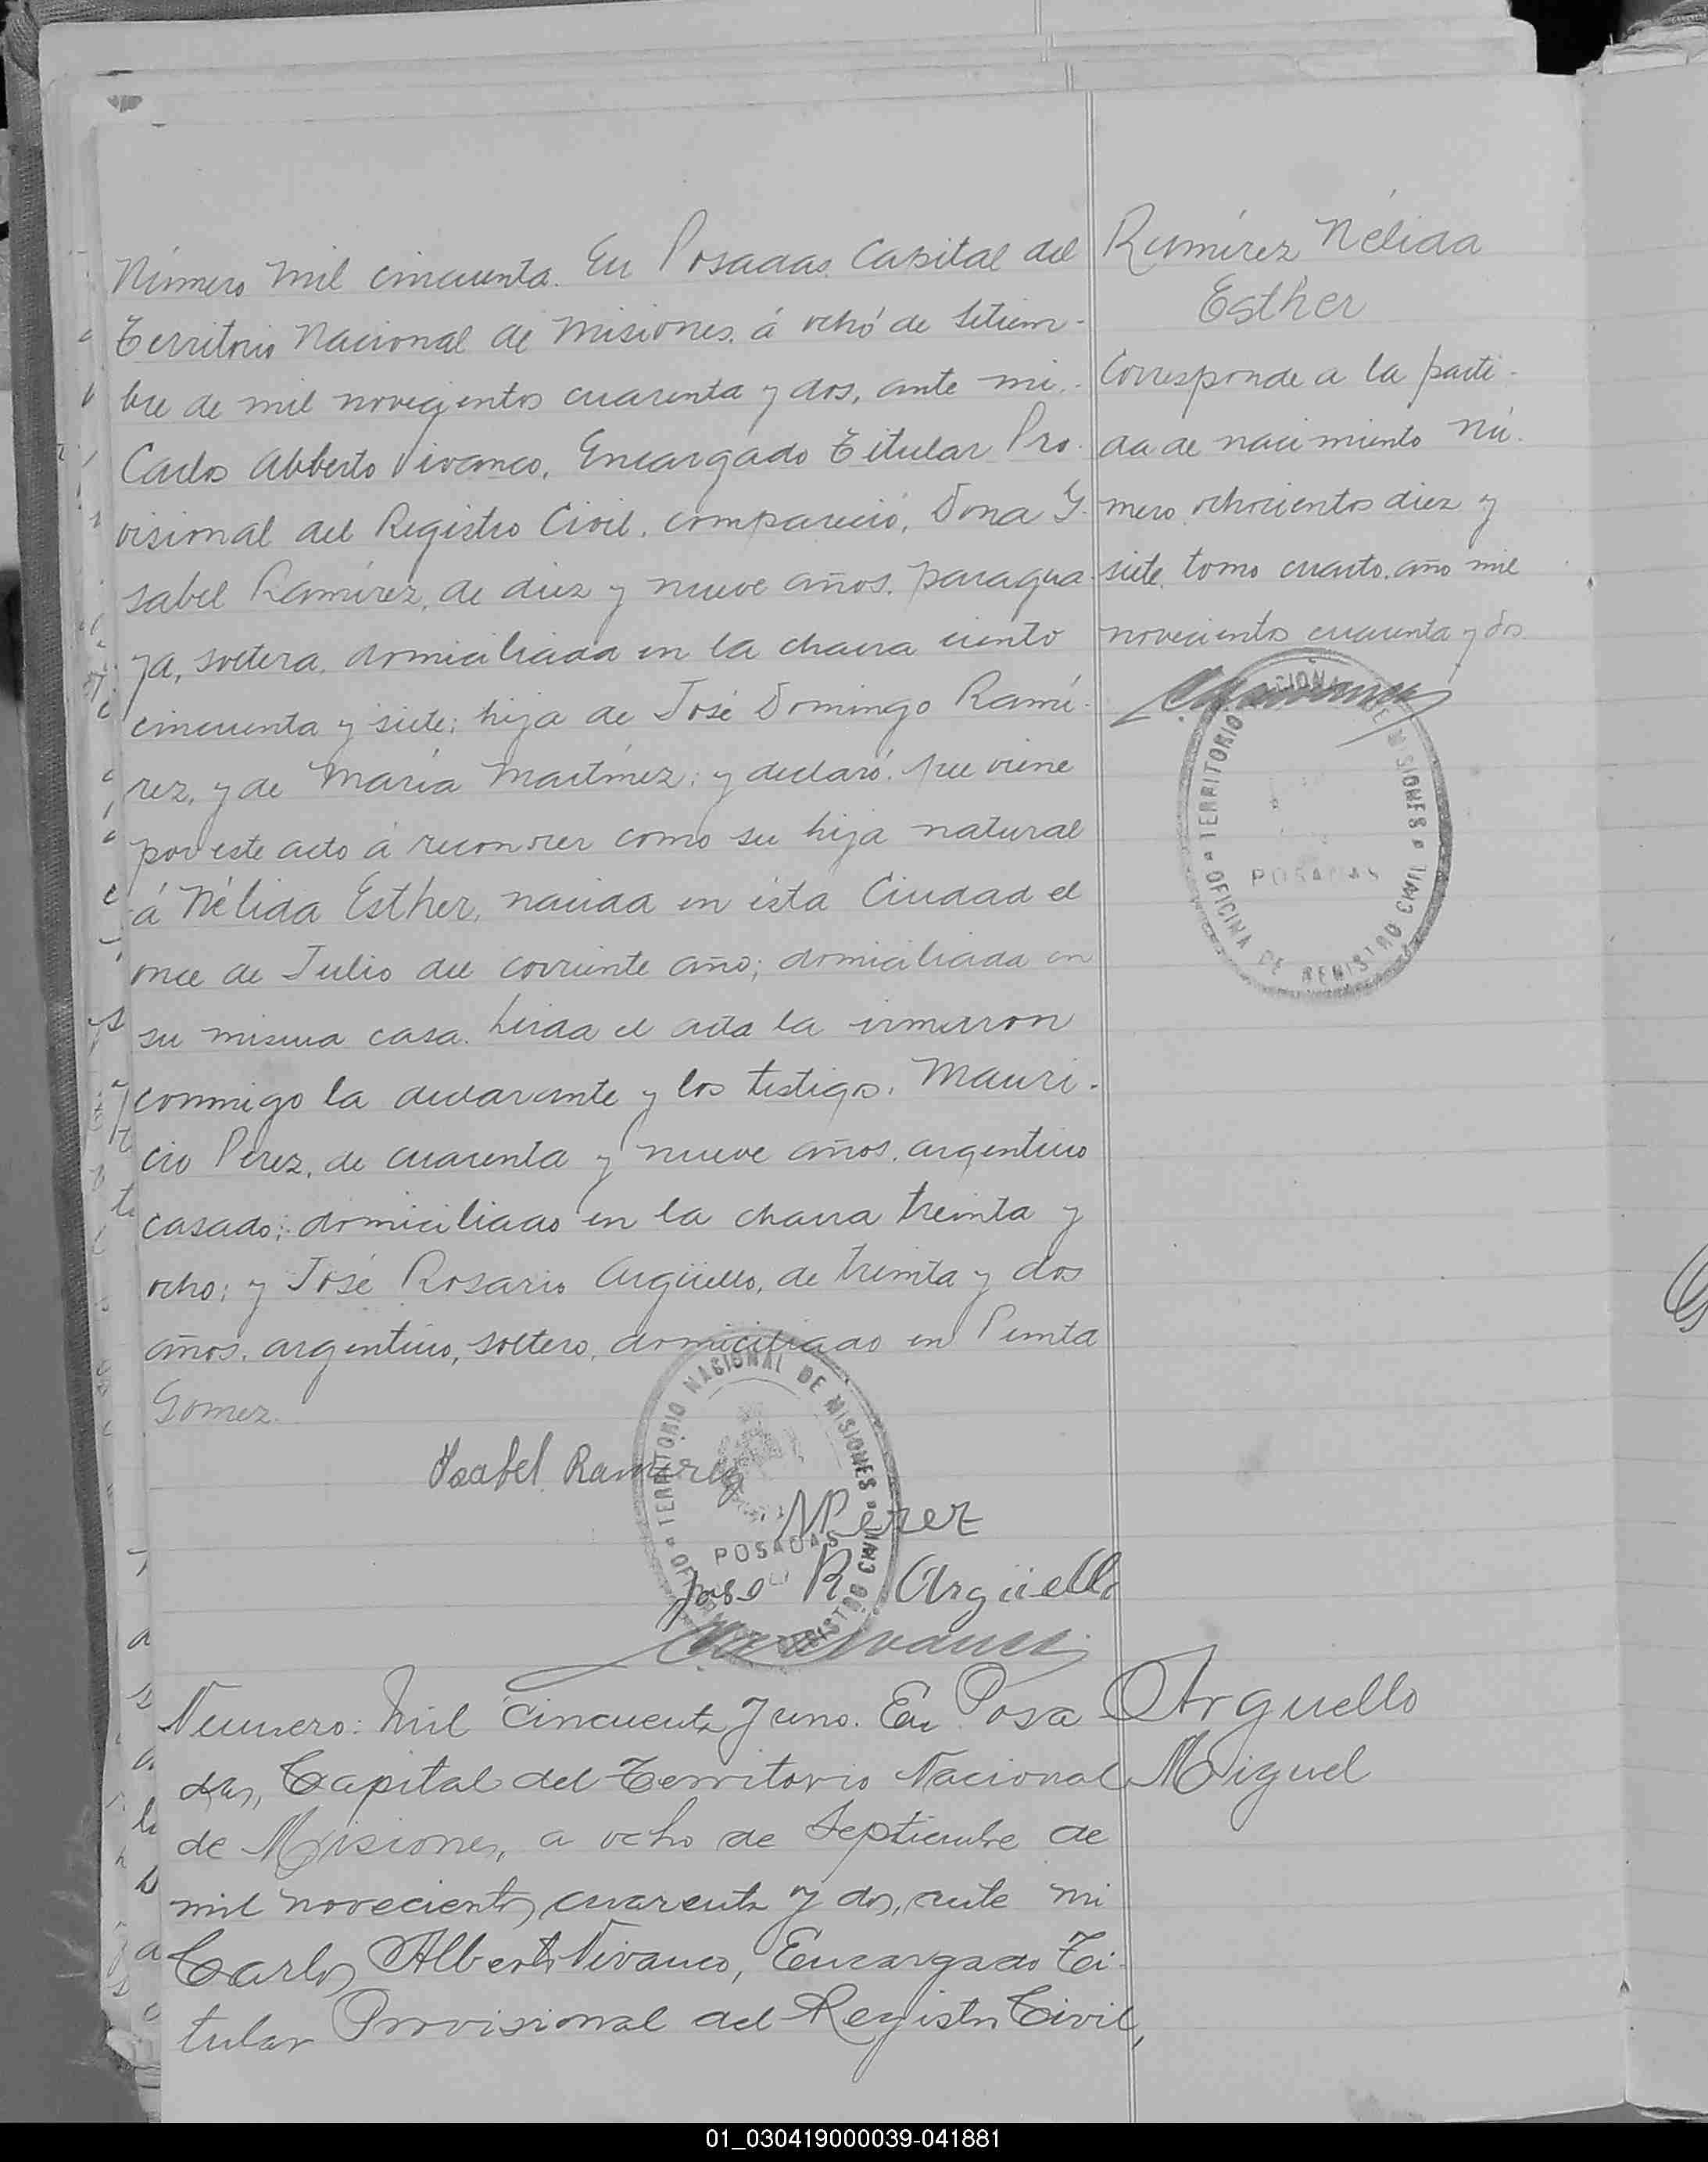 Número mil cincuenta. En Posadas Capital del
Territorio Nacional de Misiones, á ocho de Setiem-
bre de mil novecientos cuarenta y dos, ante mi,
Carlos Alberto Vivanco, Encargado Titular Pro-
visional del Registro Civil, compareció, Doña Y-
sabel Ramírez, de diez y nueve años, paragua-
ya, soltera, domiciliada en la chacra ciento
cincuenta y siete; hija de José Domingo Ramí-
rez, y de María Martínez; y declaró: que viene
por este acto á reconocer como su hija natural
á Nélida Esther, nacida en esta Ciudad el
once de Julio del corriente año; domiciliada en
su misma casa. Leida el acta la firmaron
conmigo la declarante y los testigos, Mauri-
cio Perez, de cuarenta y nueve años, argentino
casado; domiciliado en la chacra treinta y
ocho; y José Rosario Argüello, de treinta y dos
años, argentino, soltero, domiciliado en Punta
Gomez.
Ysabel Ramirez
MPerez
Jose R Argüello
TERRITORIO NACIONAL DE MISIONES
POSADAS
OFICINA DE REGISTRO CIVIL
Ramírez Nélida
Esther
Corresponde a la parti-
da de nacimiento nú-
mero ochocientos diez y
siete, tomo cuarto, año mil
novecientos cuarenta y dos
TERRITORIO NACIONAL DE MISIONES
POSADAS
OFICINA DE REGISTRO CIVIL
Numero: Mil cincuenta y uno. En Posa
das, Capital del Territorio Nacional
de Misiones, a ocho de Septiembre de
mil novecientos cuarenta y dos, ante mi
Carlos Alberto Vivanco, Encargado Ti-
tular Provisional del Registro Civil,
Arguello
Miguel
01_030419000039-041881